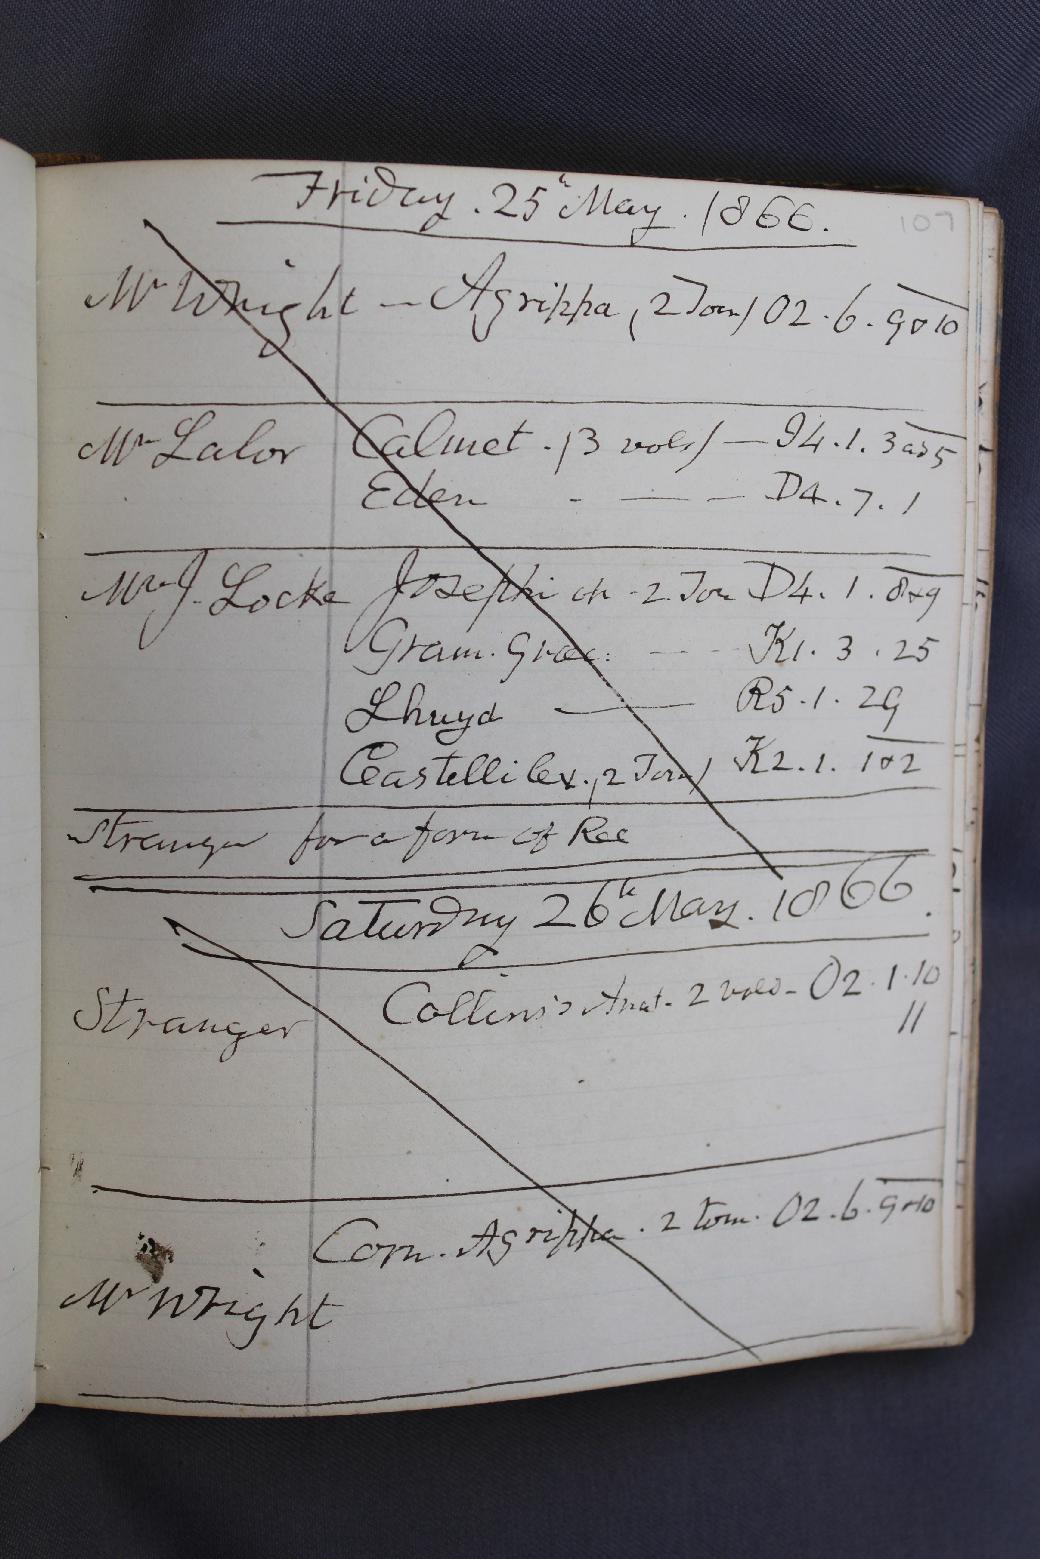 Friday. 25th May. 1866.
107
Mr Wright — Agrippa, (2 Tom) O2. 6. 9 & 10
Mr Lalor Calmet. (3 vols) — I4. 1. 3 a 5
Eden - — — D4. 7. 1
Mr J. Locke Josephi 2 Tom D4. 1. 8 & 9
Gram. Graec: — - - K1. 3. 25
Lhuyd — R5. 1. 29
Castelli Lex. (2 Tom) K2. 1. 1 & 2
Stranger for a form of Rec
Saturday 26th May. 1866.
Stranger Collins's Anat. 2 vols - O2. 1. 10
11
Corn. Agrippa. 2 tom. O2. 6. 9 & 10
Mr Wright